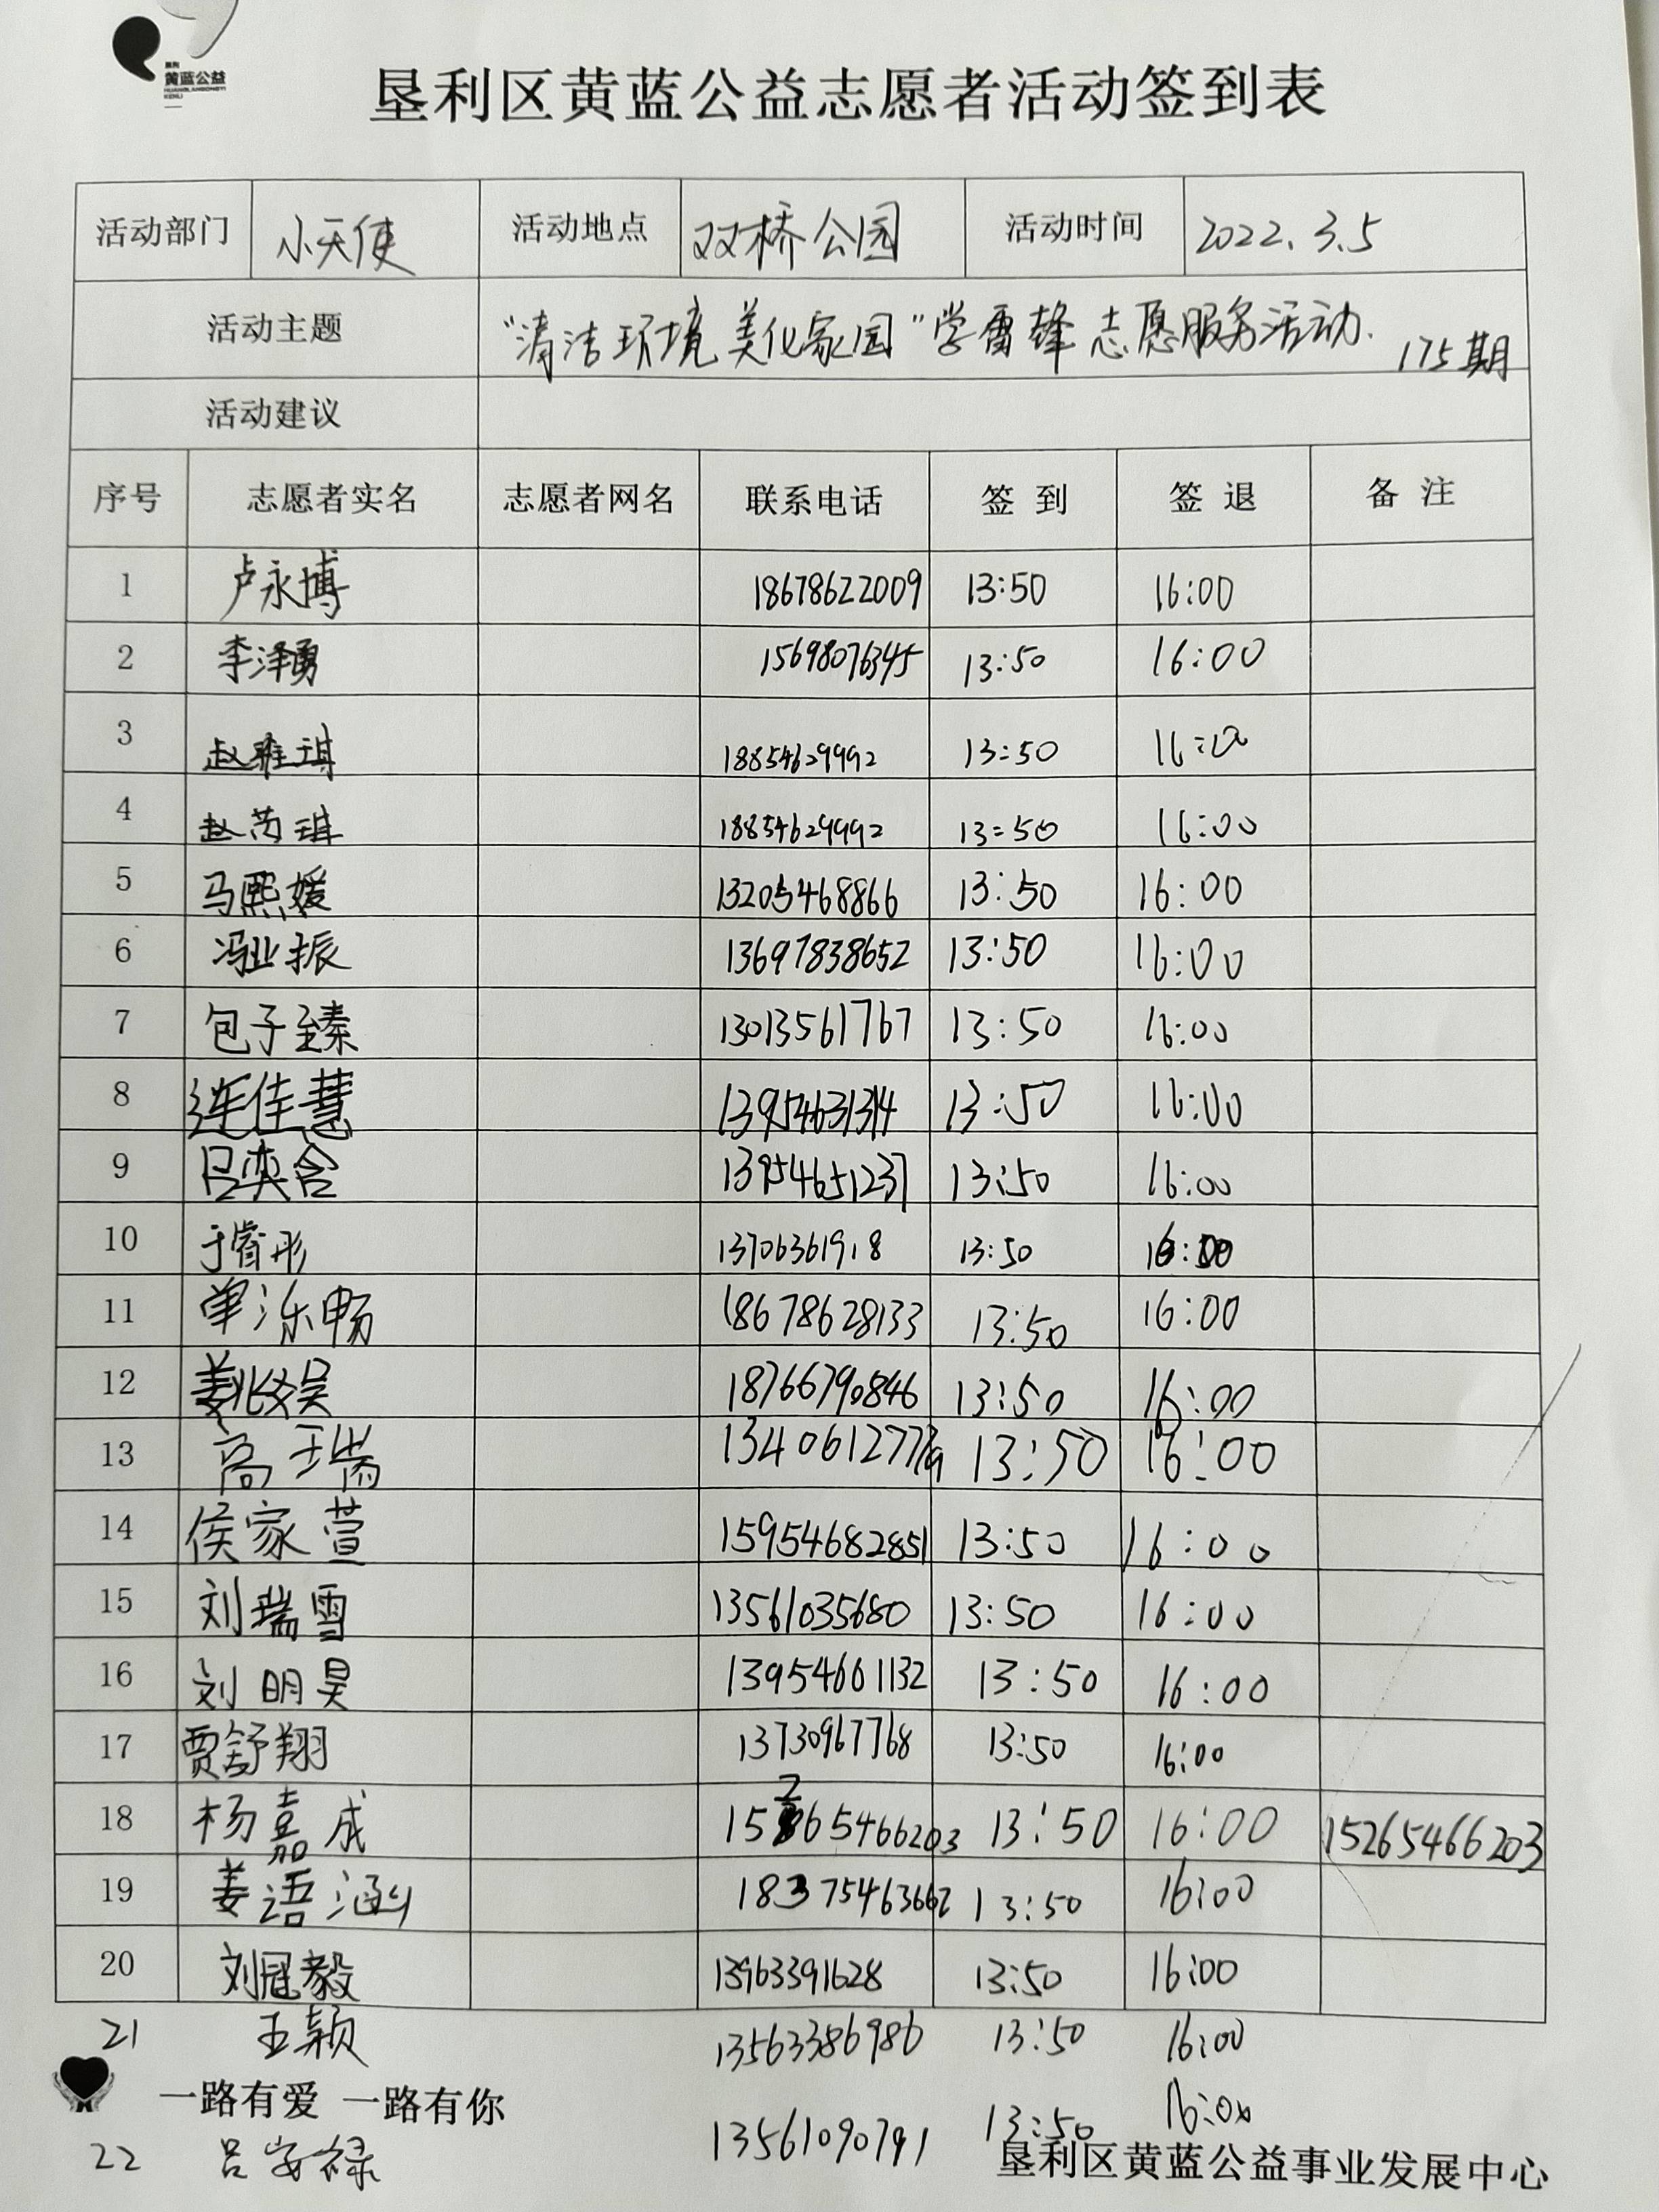 垦利
黄蓝公益
HUANGLANGONGYI
KENLI
垦利区黄蓝公益志愿者活动签到表
活动部门 小天使 活动地点 双桥公园 活动时间 2022.3.5
活动主题 “清洁环境美化家园”学雷锋志愿服务活动. 175期
活动建议
序号 志愿者实名 志愿者网名 联系电话 签 到 签 退 备 注
1 卢永博 18678622009 13:50 16:00
2 李泽勇 15698076345 13:50 16:00
3 赵雅琪 18854629992 13:50 16:00
4 赵芮琪 18854629992 13:50 16:00
5 马熙媛 13205468866 13:50 16:00
6 冯业振 13697838652 13:50 16:00
7 包子臻 13013561767 13:50 16:00
8 连佳慧 13954631314 13:50 16:00
9 吕奕含 13954651237 13:50 16:00
10 于睿彤 13706361918 13:50 16:00
11 单泺畅 18678628133 13:50 16:00
12 姜兆昊 18766790846 13:50 16:00
13 高瑞 13406127779 13:50 16:00
14 侯家萱 15954682851 13:50 16:00
15 刘瑞雪 13561035680 13:50 16:00
16 刘明昊 13954661132 13:50 16:00
17 贾舒翔 13730967768 13:50 16:00
18 杨嘉成 15265466203 13:50 16:00 15265466203
19 姜语涵 18375463662 13:50 16:00
20 刘冠毅 13963391628 13:50 16:00
21 王颖 13563386986 13:50 16:00
一路有爱 一路有你
22 吕安禄 13561090791 13:50 16:00
垦利区黄蓝公益事业发展中心